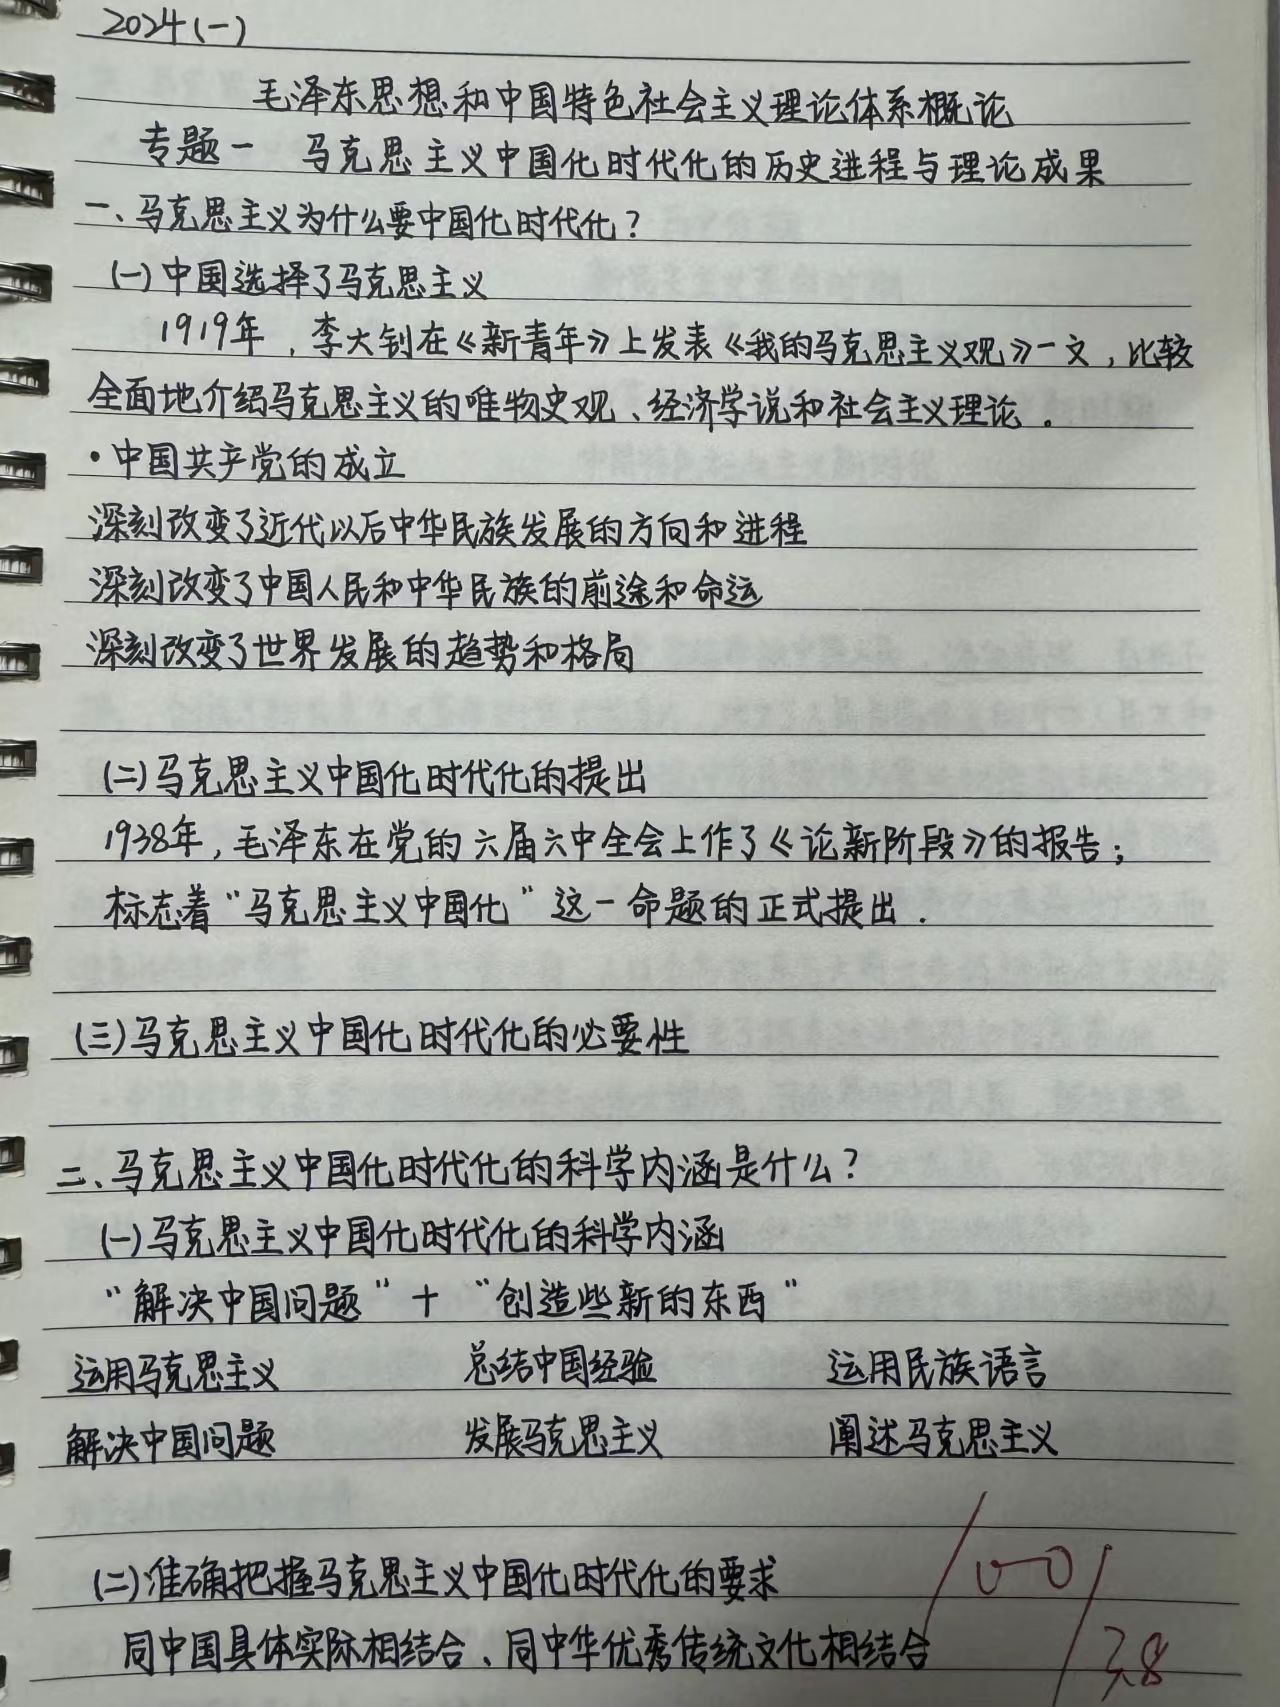 2024(一)
毛泽东思想和中国特色社会主义理论体系概论
专题一 马克思主义中国化时代化的历史进程与理论成果
一、马克思主义为什么要中国化时代化？
(一)中国选择了马克思主义
1919年，李大钊在《新青年》上发表《我的马克思主义观》一文，比较
全面地介绍马克思主义的唯物史观、经济学说和社会主义理论。
·中国共产党的成立
深刻改变了近代以后中华民族发展的方向和进程
深刻改变了中国人民和中华民族的前途和命运
深刻改变了世界发展的趋势和格局
(二)马克思主义中国化时代化的提出
1938年，毛泽东在党的六届六中全会上作了《论新阶段》的报告；
标志着“马克思主义中国化”这一命题的正式提出.
(三)马克思主义中国化时代化的必要性
二、马克思主义中国化时代化的科学内涵是什么？
(一)马克思主义中国化时代化的科学内涵
“解决中国问题” + “创造些新的东西”
运用马克思主义 总结中国经验 运用民族语言
解决中国问题 发展马克思主义 阐述马克思主义
(二)准确把握马克思主义中国化时代化的要求
同中国具体实际相结合、同中华优秀传统文化相结合
100
3.8